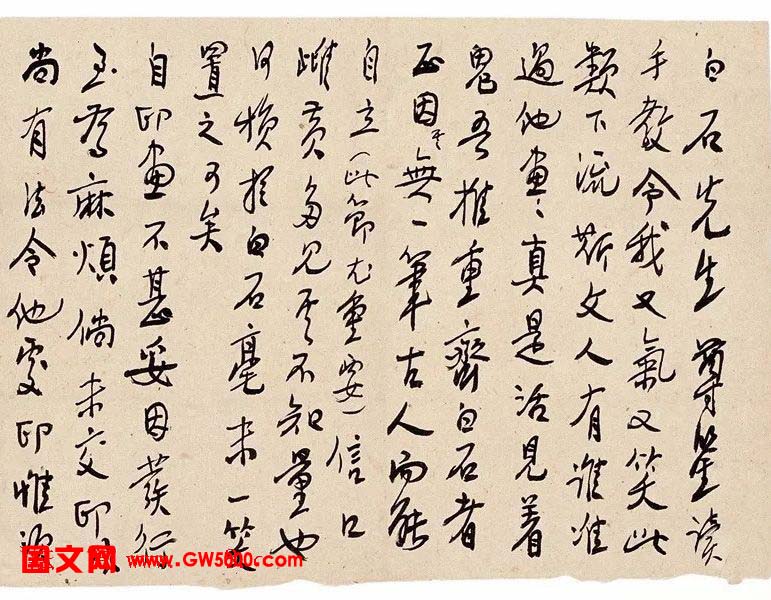 白石先生尊鉴读
手教令我又氣又笑此
類下流斯文人有谁准
過他畫、真是活見着
鬼吾推重齊白石者
正因其無一筆古人而能
自立（此節尤重要）信口
雌黄多見其不知量也
何損於白石毫末一笑
置之可矣
自印畫不甚妥因發行
至为麻煩倘未交印
尚有法令他處印惟
国文网 www.GW5600.com